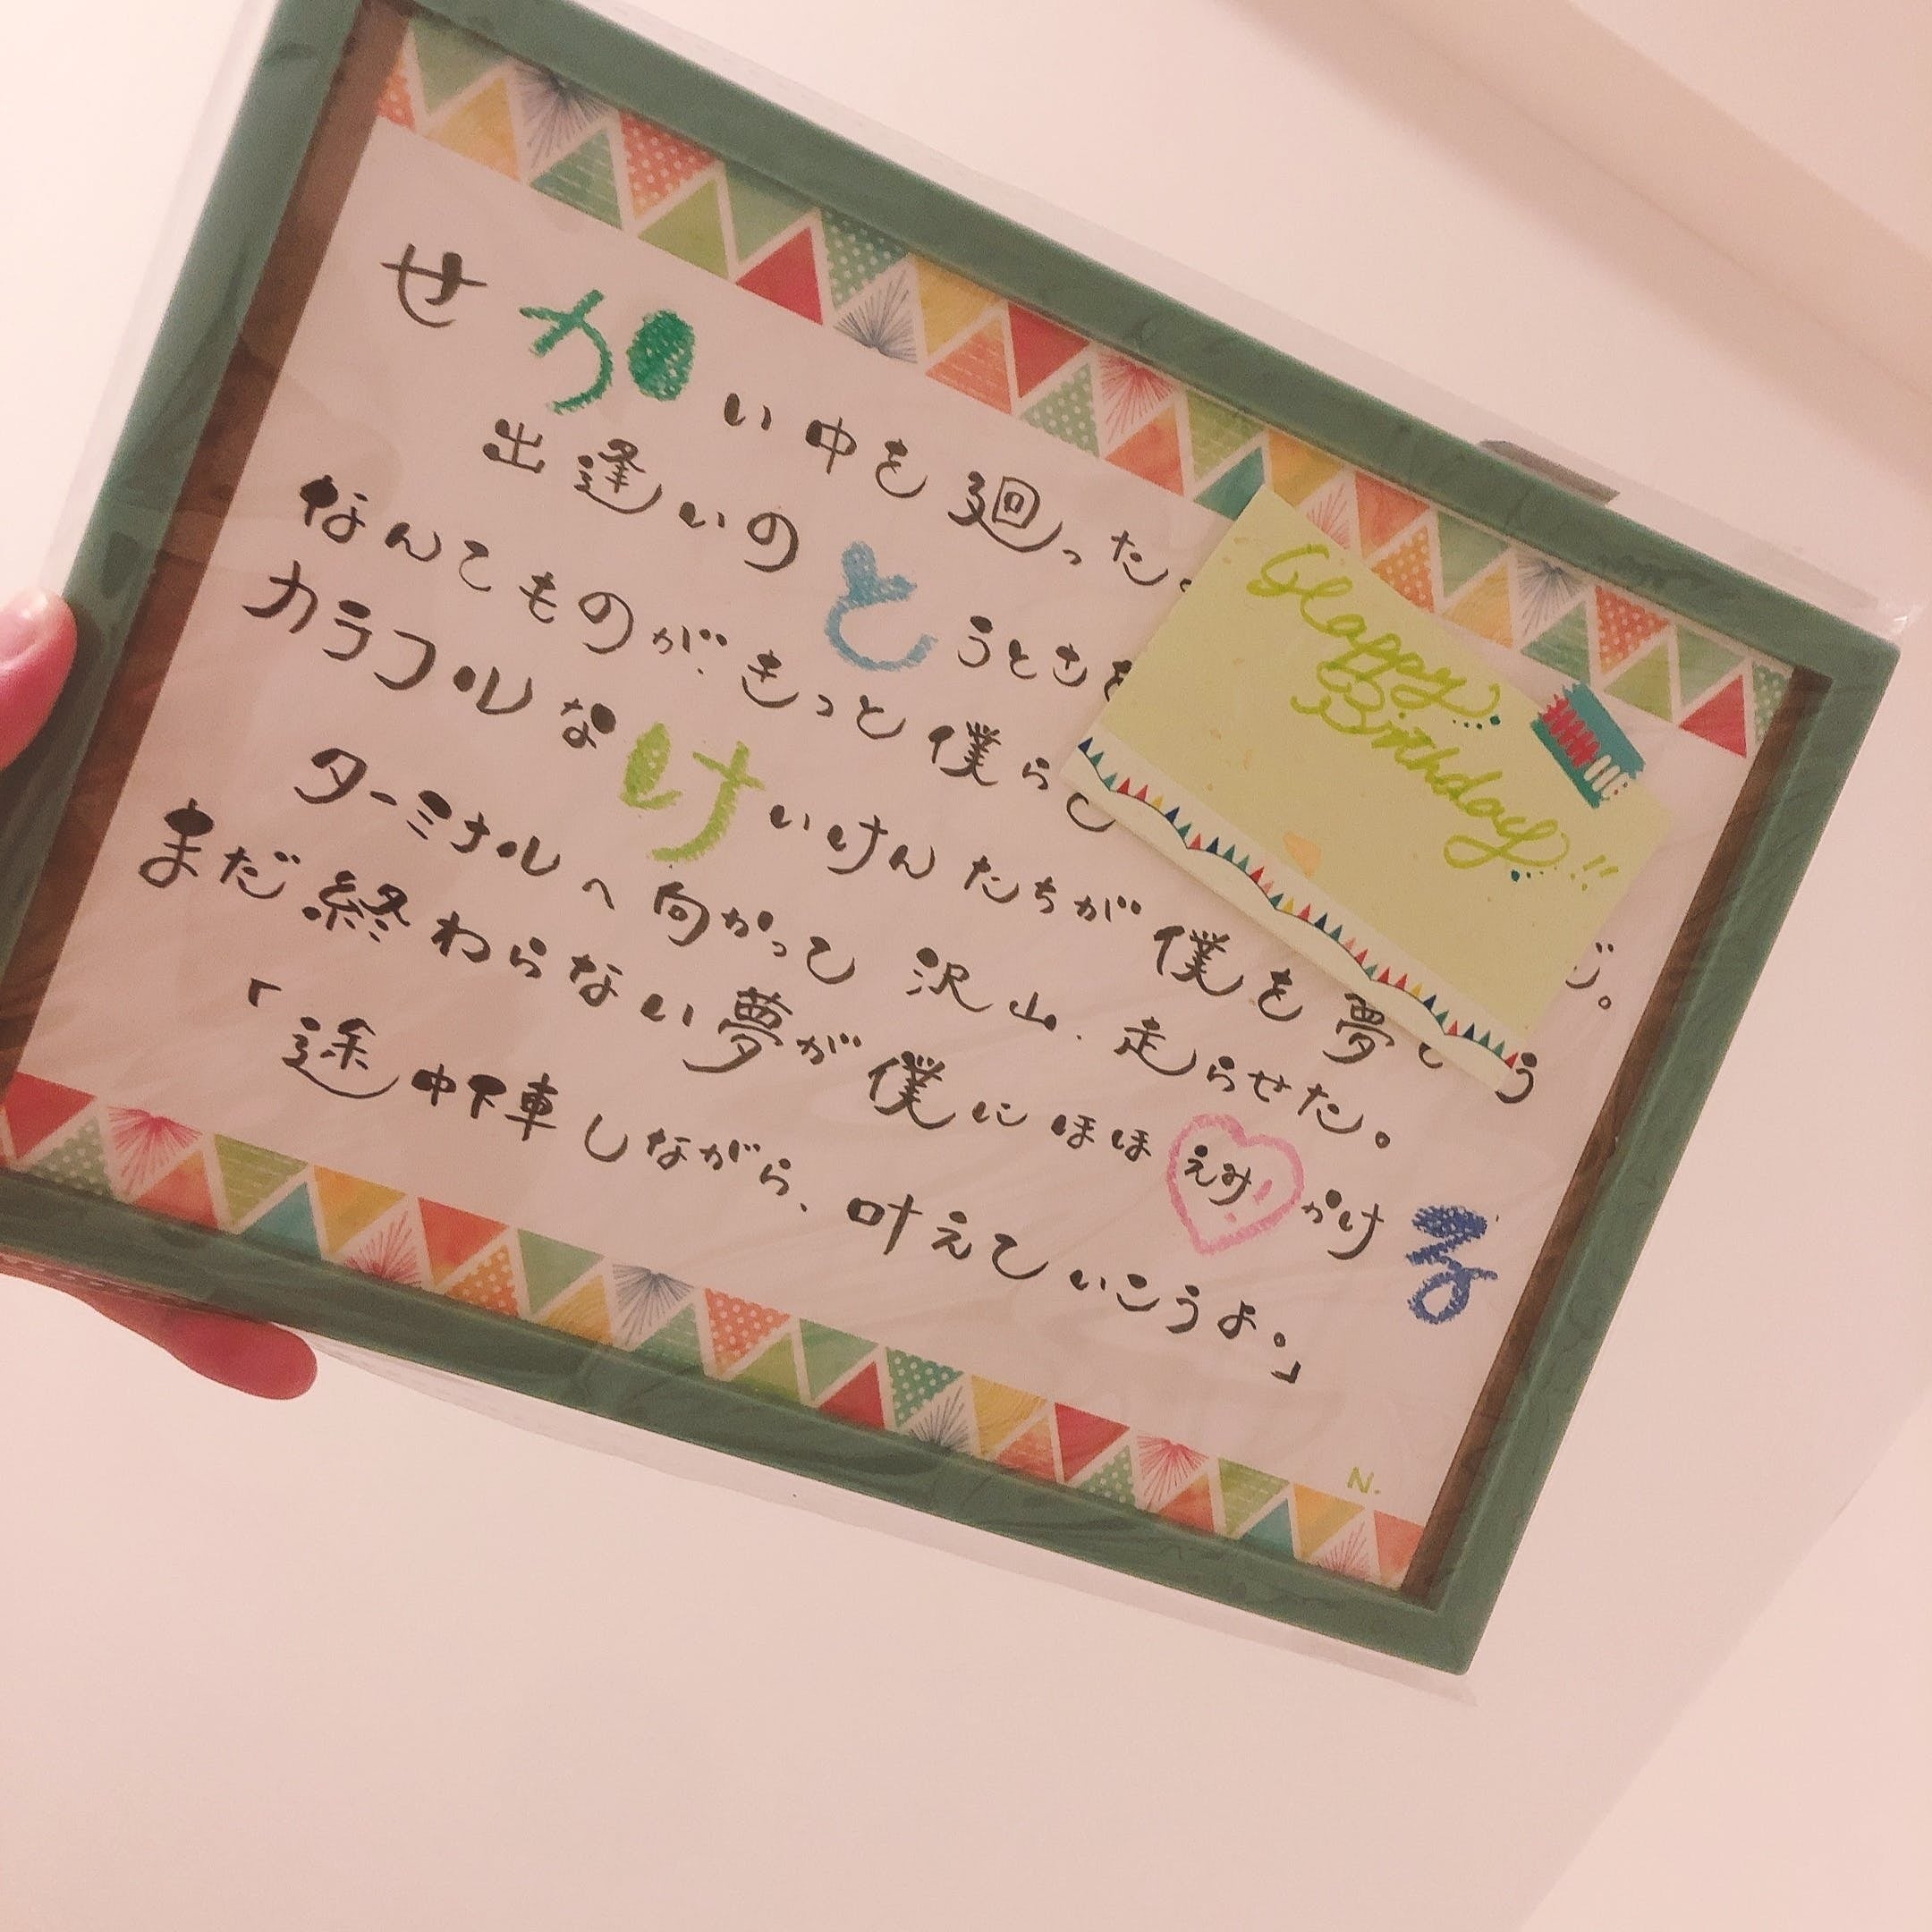 せかい中を廻った。
出逢いのとうとさを
なんてものが、きっと僕らし
カラフルなけいけんたちが僕を夢
う
ターミナルへ向かって沢山、走らせた。
まだ終わらない夢が僕にほほえみかける
「途中下車しながら、叶えていこうよ。」
N.
Happy
Birthday!!